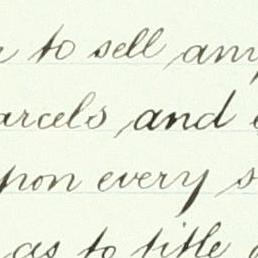 to sell any
arcels and
pon every s
as to title